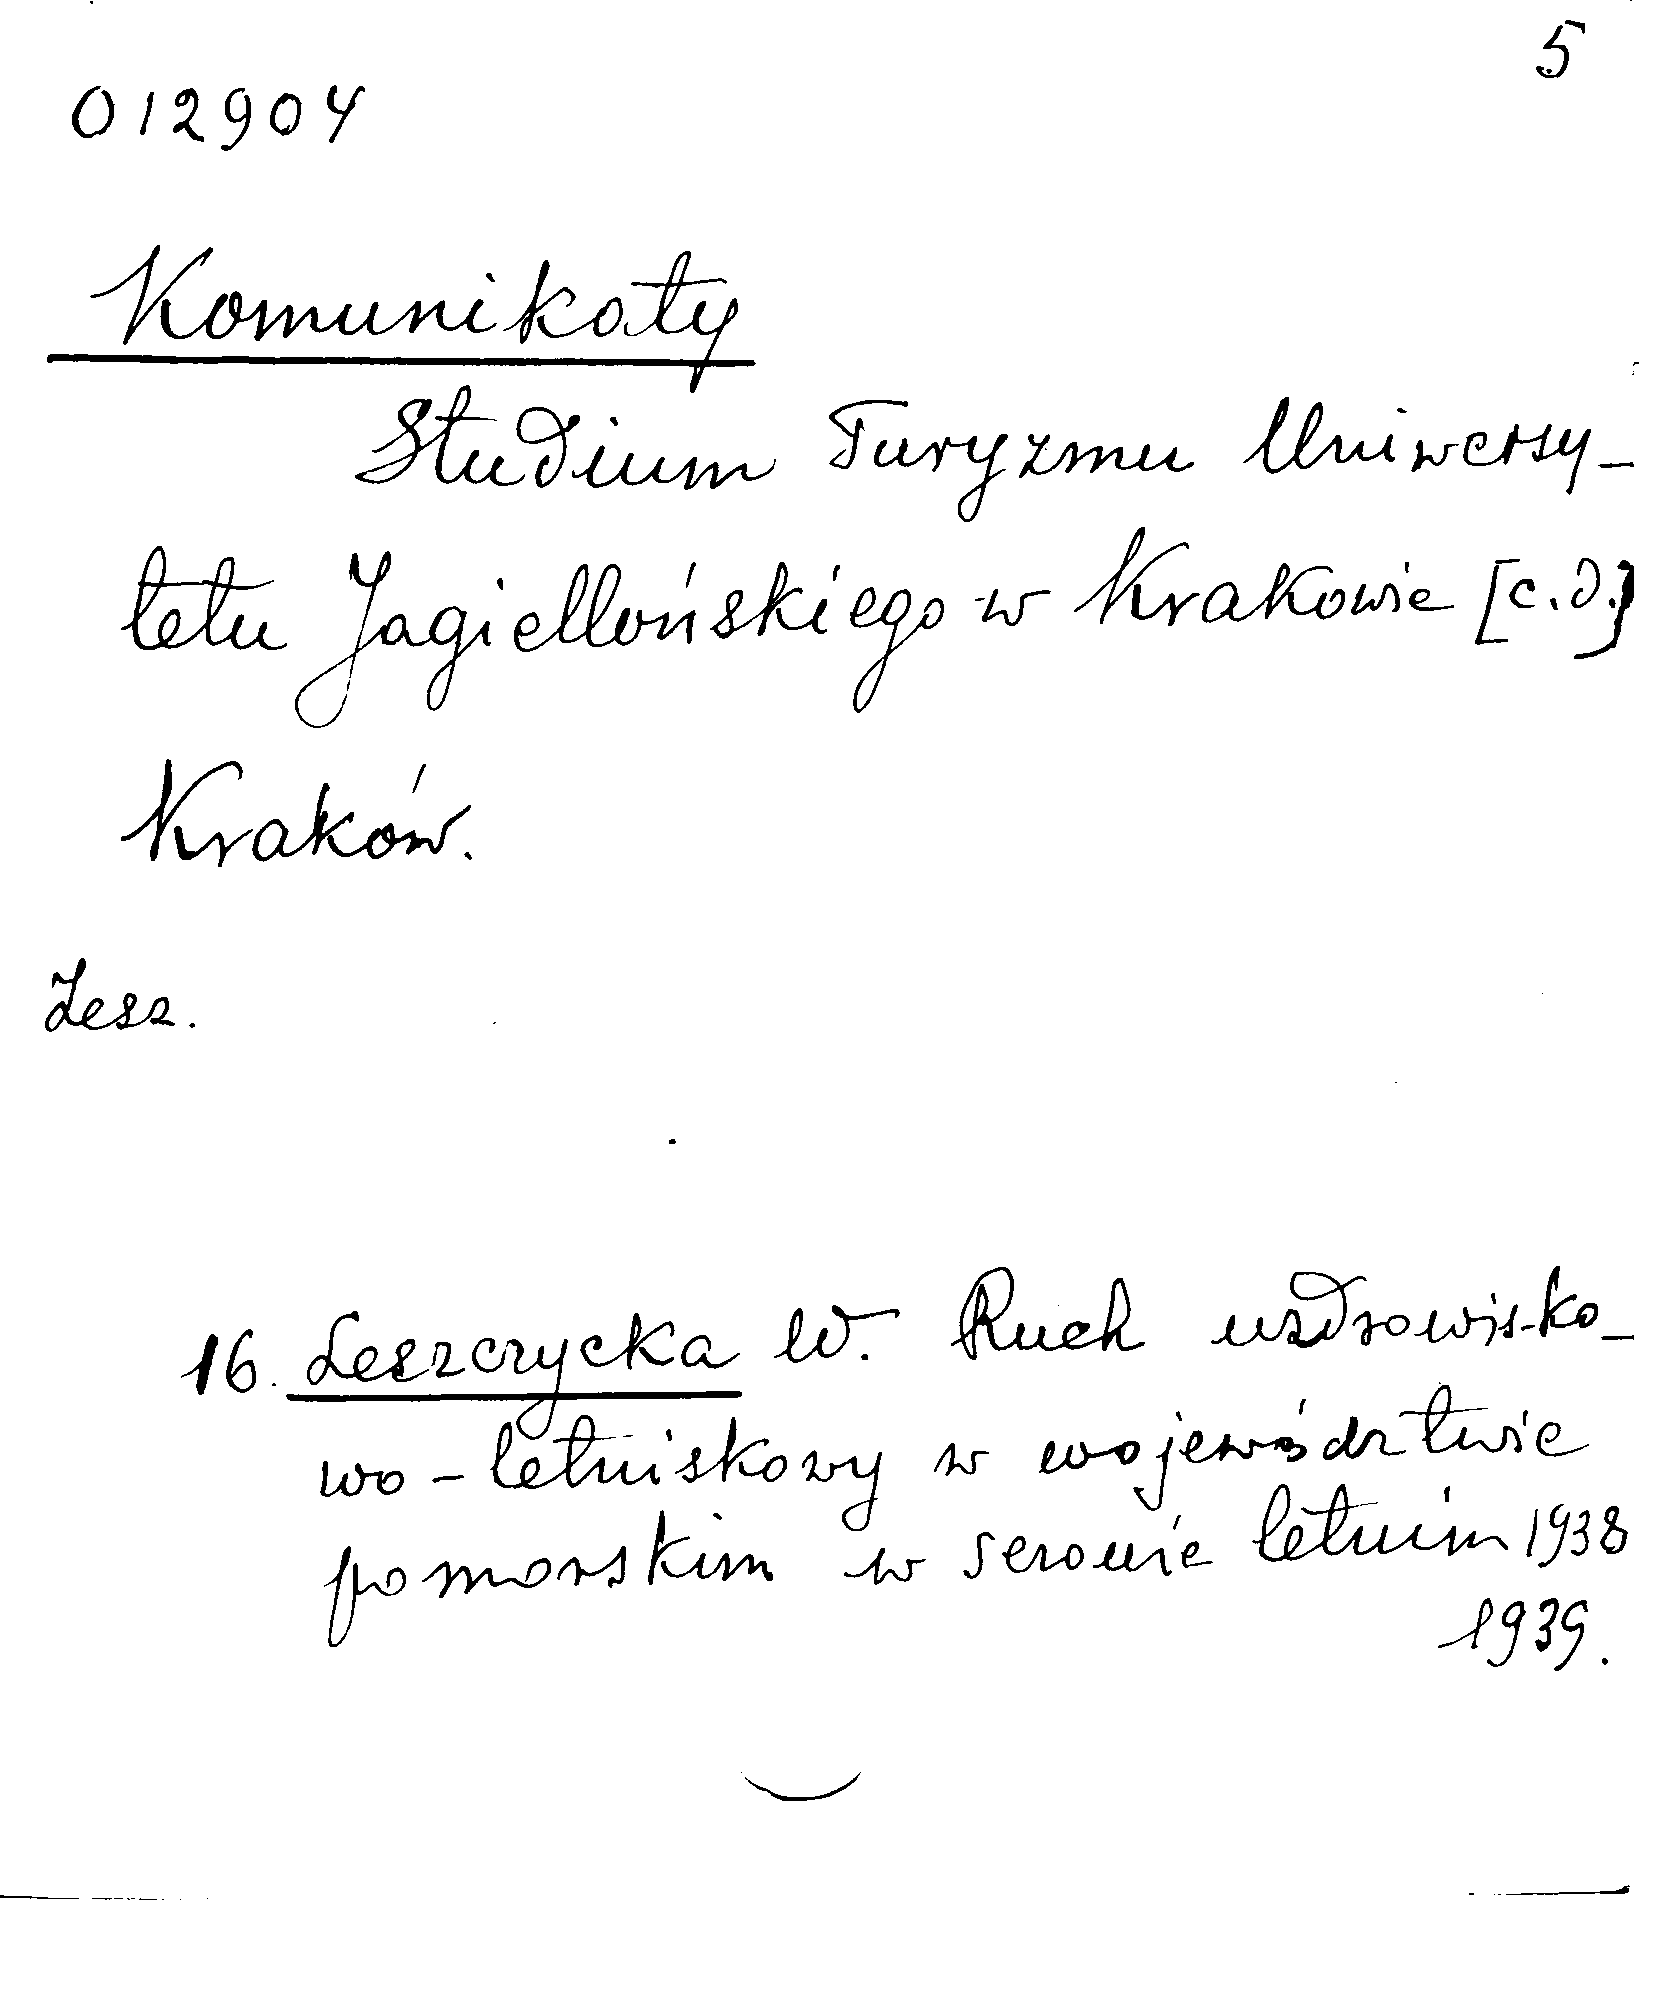 5
012904
Komunikaty
Studium Turyzmu Uniwersy-
tetu Jagiellońskiego w Krakowie [c.d.]
Kraków.
Zesz.
16. Leszczycka W. Ruch uzdrowisko-
wo-letniskowy w województwie
pomorskim w sezonie letnim 1938
1939.